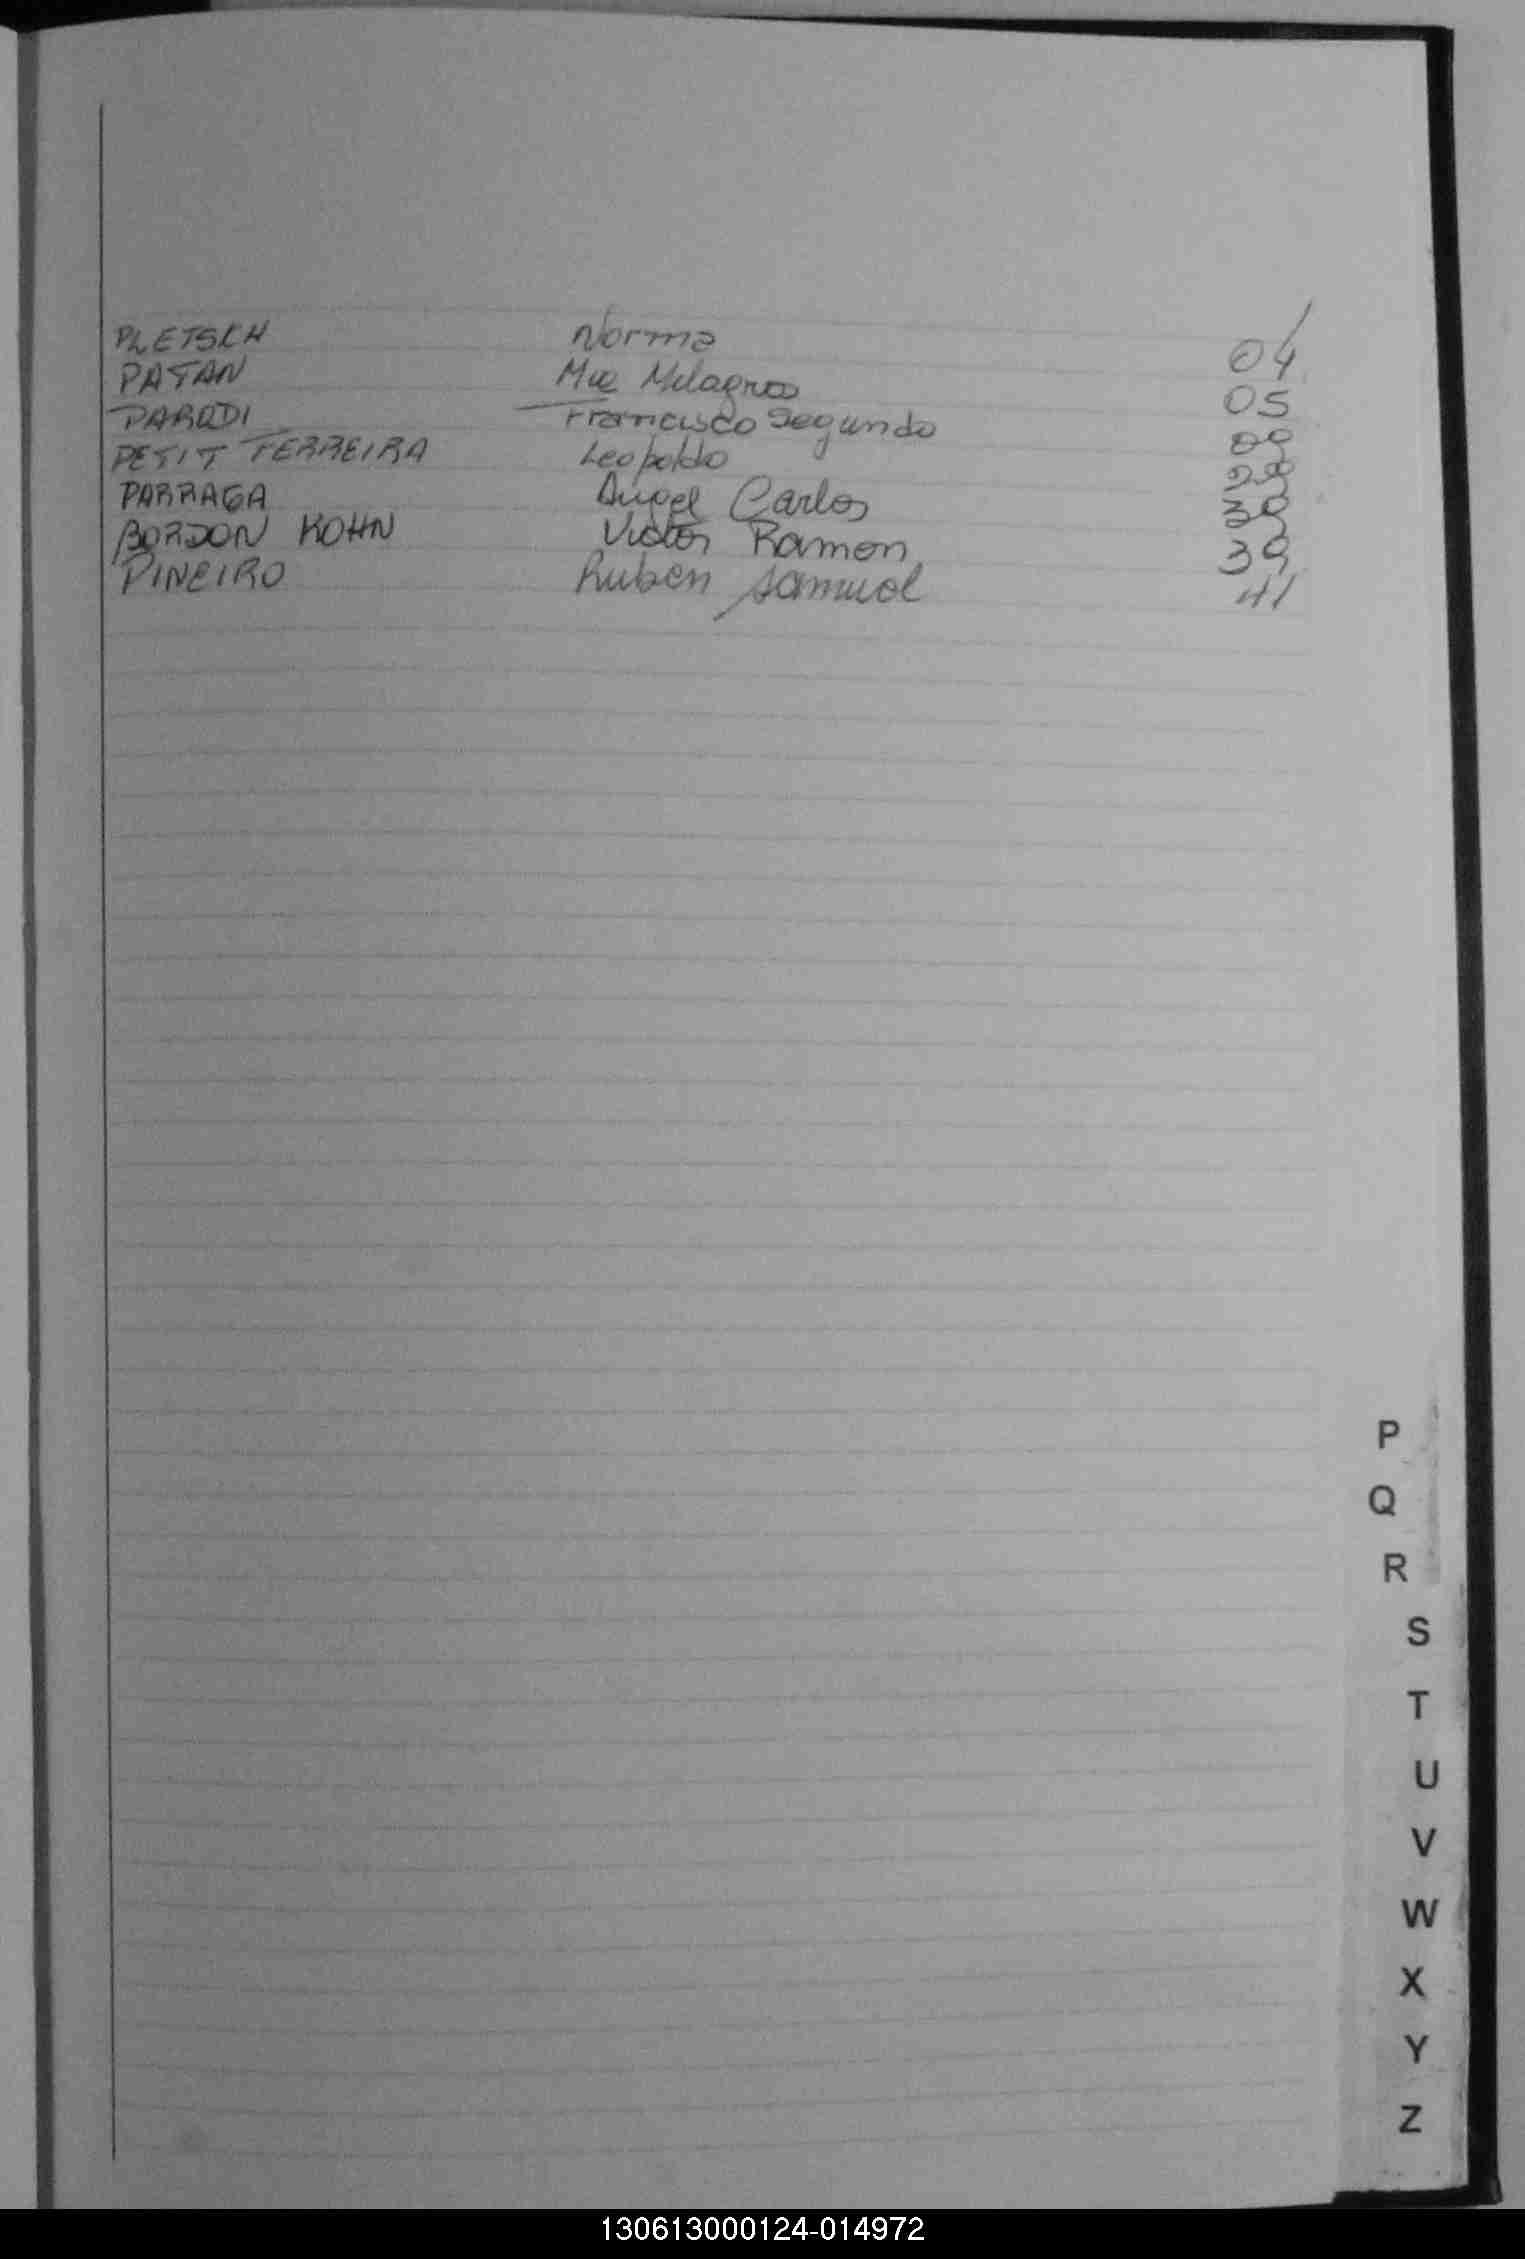 PLETSCH Norma 04
PATAN Ma Milagros 05
PARODI Francisco Segundo 09
PETIT FERREIRA Leopoldo
PARRAGA Angel Carlos 39
BORDON KOHN Victor Ramon 39
PINEIRO Ruben Samuel 41
P
Q
R
S
T
U
V
W
X
Y
Z
130613000124-014972